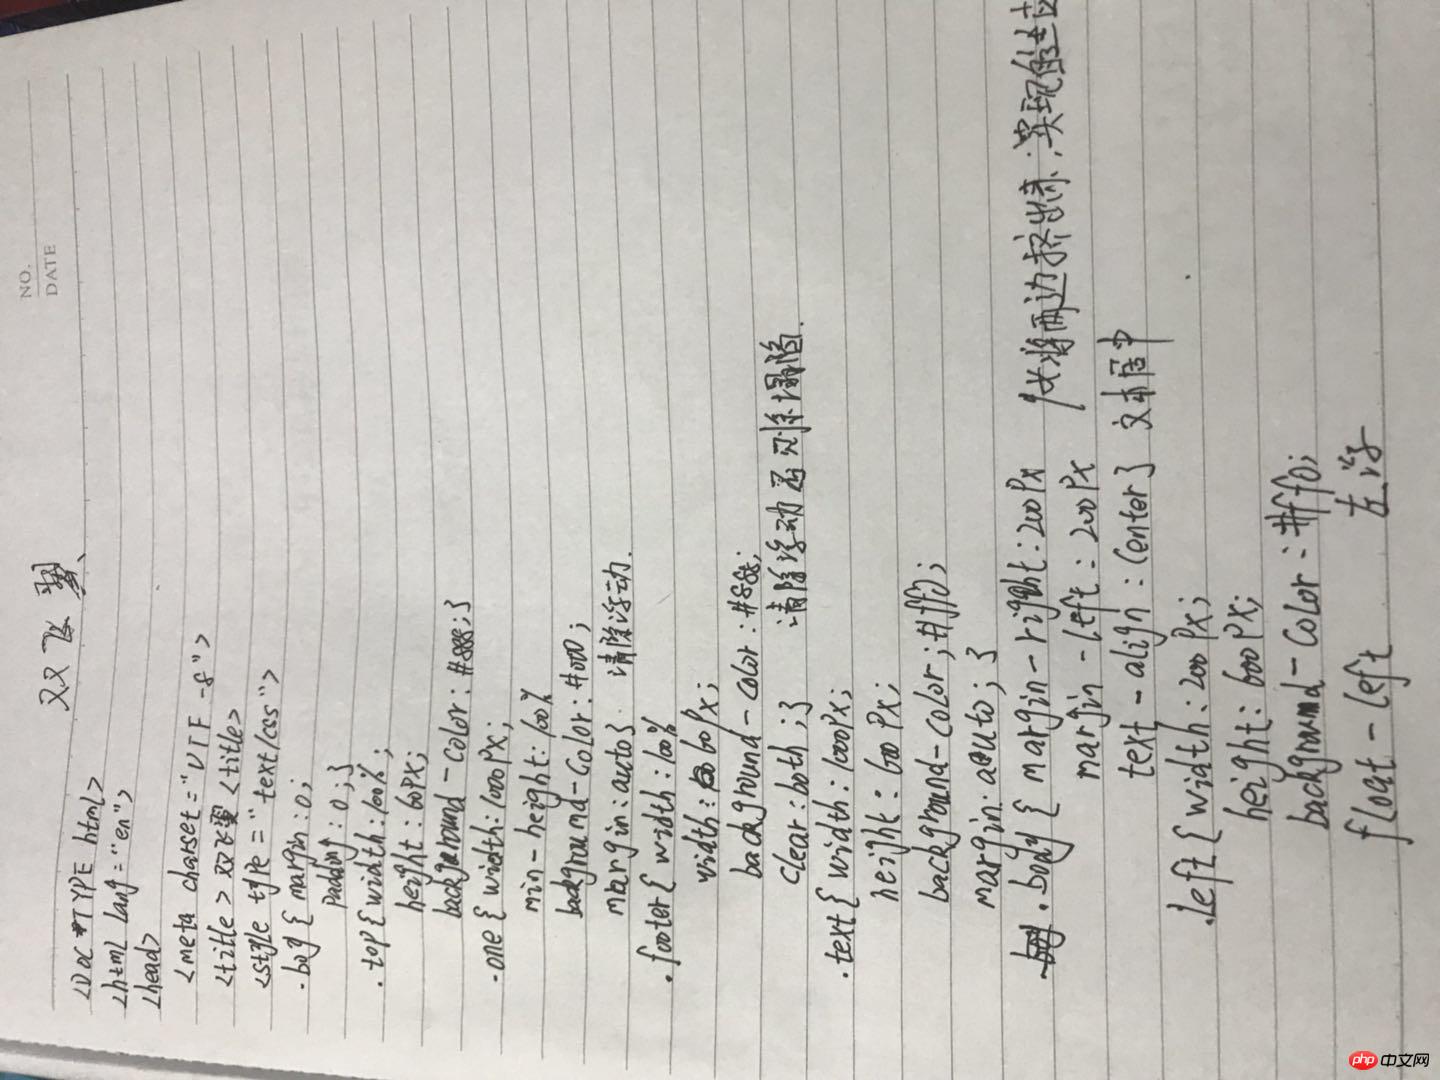 NO.
DATE
双飞翼、
<DOC TYPE html>
<html lang="en">
<head>
<meta charset="UTF-8">
<title>双飞翼<title>
<style type="text/css">
.boy{margin:0;
padding:0;}
.top{width:100%;
height:60px;
background-color:#888;}
.one{width:1000px;
min-height:100%
background-color:#000;
margin:auto}. 清除浮动.
.footer{width:100%
width:60px;
background-color:#888;
clear:both;} 清除浮动否则塌陷.
.text{width:1000px;
height:600px;
background-color;#ff0;
margin:auto;}
.body{margin-right:200px
margin-left:200px 将两边挤出来:实现
text-align:center} 文本居中
.left{width:200px;
height:600px;
background-color:#ff0;
float-left 左浮
php 中文网